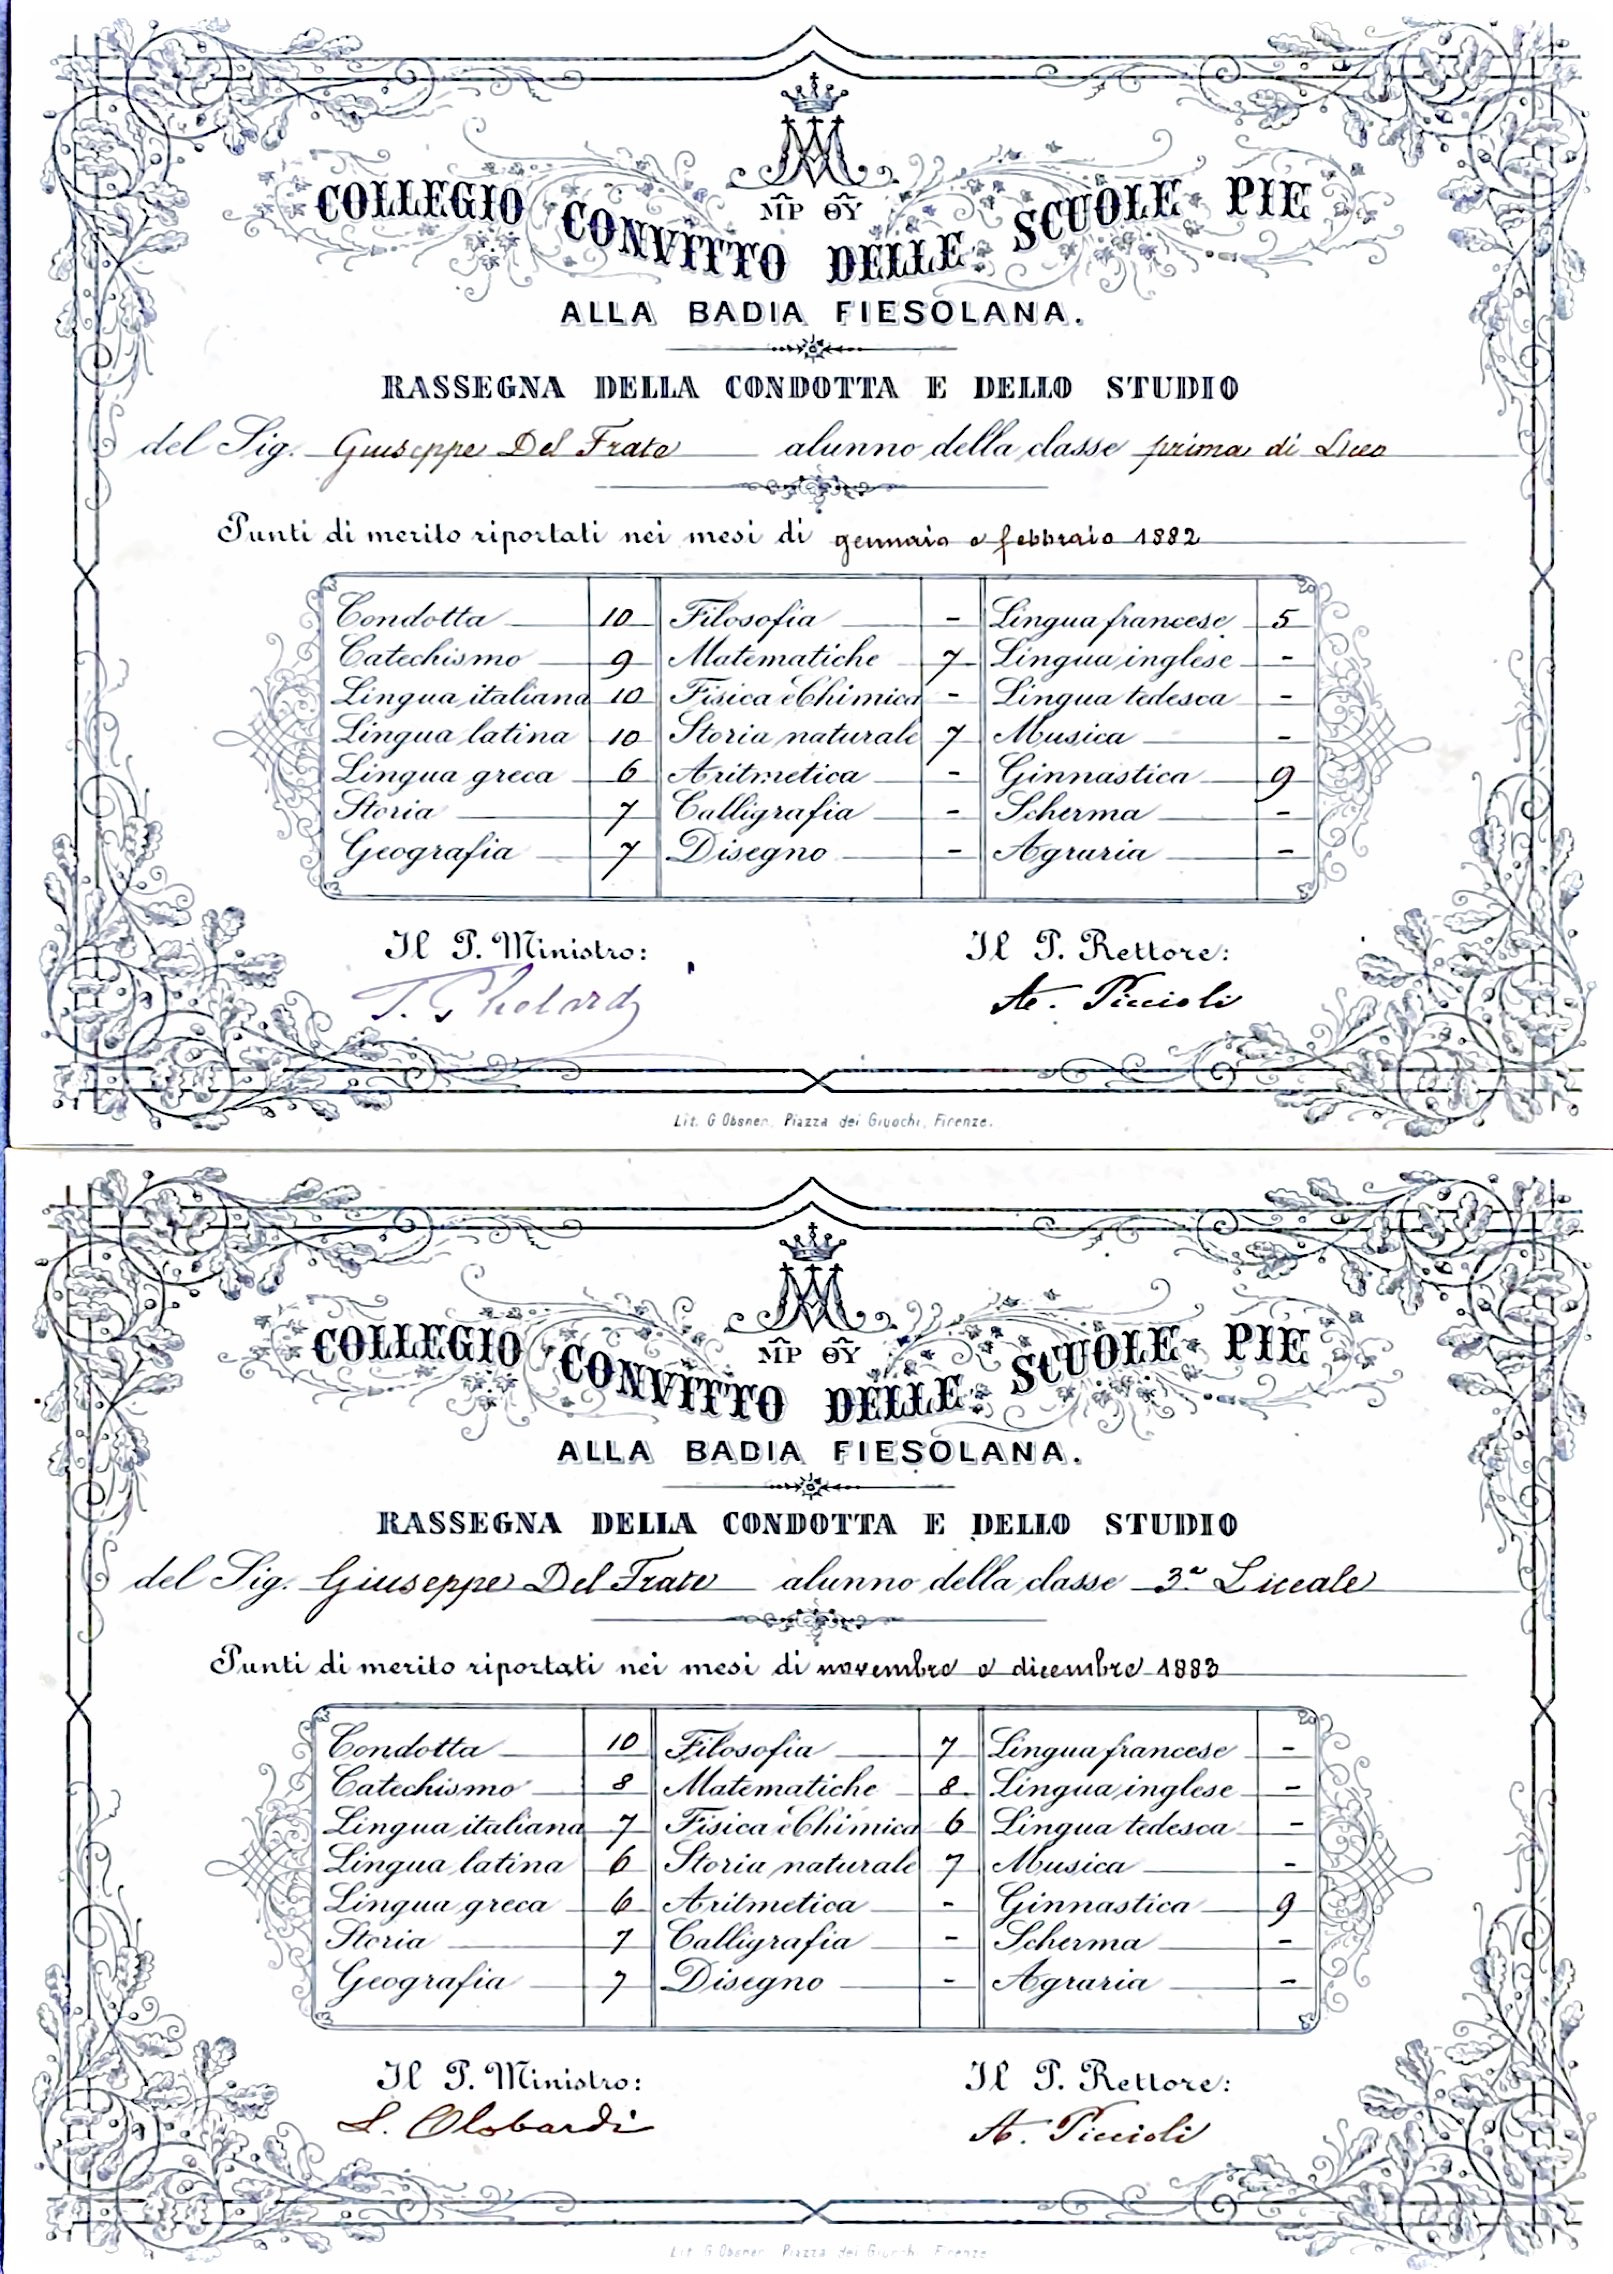 M̂P ΘŶ
COLLEGIO CONVITTO DELLE SCUOLE PIE
ALLA BADIA FIESOLANA.
RASSEGNA DELLA CONDOTTA E DELLO STUDIO
del Sig. Giuseppe Del Frate alunno della classe prima di Liceo
Punti di merito riportati nei mesi di gennaio e febbraio 1882
Condotta 10 Filosofia - Lingua francese 5
Catechismo 9 Matematiche 7 Lingua inglese -
Lingua italiana 10 Fisica e Chimica - Lingua tedesca -
Lingua latina 10 Storia naturale 7 Musica -
Lingua greca 6 Aritmetica - Ginnastica 9
Storia 7 Calligrafia - Scherma -
Geografia 7 Disegno - Agraria -
Il P. Ministro: Il P. Rettore:
A. Piccioli
Lit. G. Obsner, Piazza dei Giuochi, Firenze.
M̂P ΘŶ
COLLEGIO CONVITTO DELLE SCUOLE PIE
ALLA BADIA FIESOLANA.
RASSEGNA DELLA CONDOTTA E DELLO STUDIO
del Sig. Giuseppe Del Frate alunno della classe 3a Liceale
Punti di merito riportati nei mesi di novembre e dicembre 1883
Condotta 10 Filosofia 7 Lingua francese -
Catechismo 8 Matematiche 8 Lingua inglese -
Lingua italiana 7 Fisica e Chimica 6 Lingua tedesca -
Lingua latina 6 Storia naturale 7 Musica -
Lingua greca 6 Aritmetica - Ginnastica 9
Storia 7 Calligrafia - Scherma -
Geografia 7 Disegno - Agraria -
Il P. Ministro: Il P. Rettore:
A. Piccioli
Lit. G. Obsner, Piazza dei Giuochi, Firenze